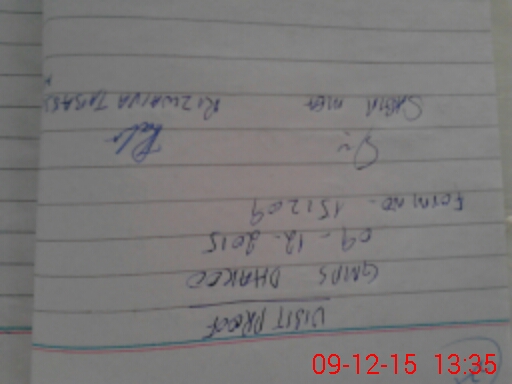 VISIT PROOF
GMPS DHAKOO
09-12-2015
Form no. 151209
SABIR RIZWANA TABASS
09-12-15 13:35